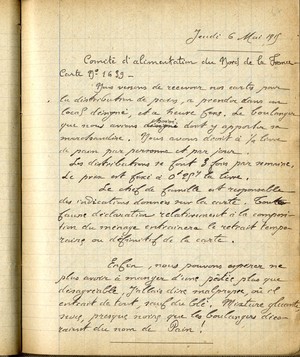 Jeudi 6 Mai 1915
Comité d'alimentation du Nord de la France
Carte No 1623 -
Nous venons de recevoir nos cartes pour
la distribution de pain, à prendre dans un
local désigné, et à heure fixe. Le boulanger
que nous avons choisi doit y apporter sa
marchandise. Nous avons droit à ½ livre
de pain par personne et par jour.
Les distributions se font 3 fois par semaine.
Le prix est fixé à 0f 25 la livre.
Le chef de famille est responsable
des indications données sur la carte. Toute
fausse déclaration relativement à la composi-
tion du ménage entraînera le retrait tempo-
raire ou définitif de la carte.
Enfin, nous pouvons espérer ne
plus avoir à manger d'une pâtée plus que
désagréable, j'allais dire malpropre, où il
entrait de tout, sauf du blé. Mixture gluante,
noire, presque noire que les boulangers déco-
raient du nom de Pain!